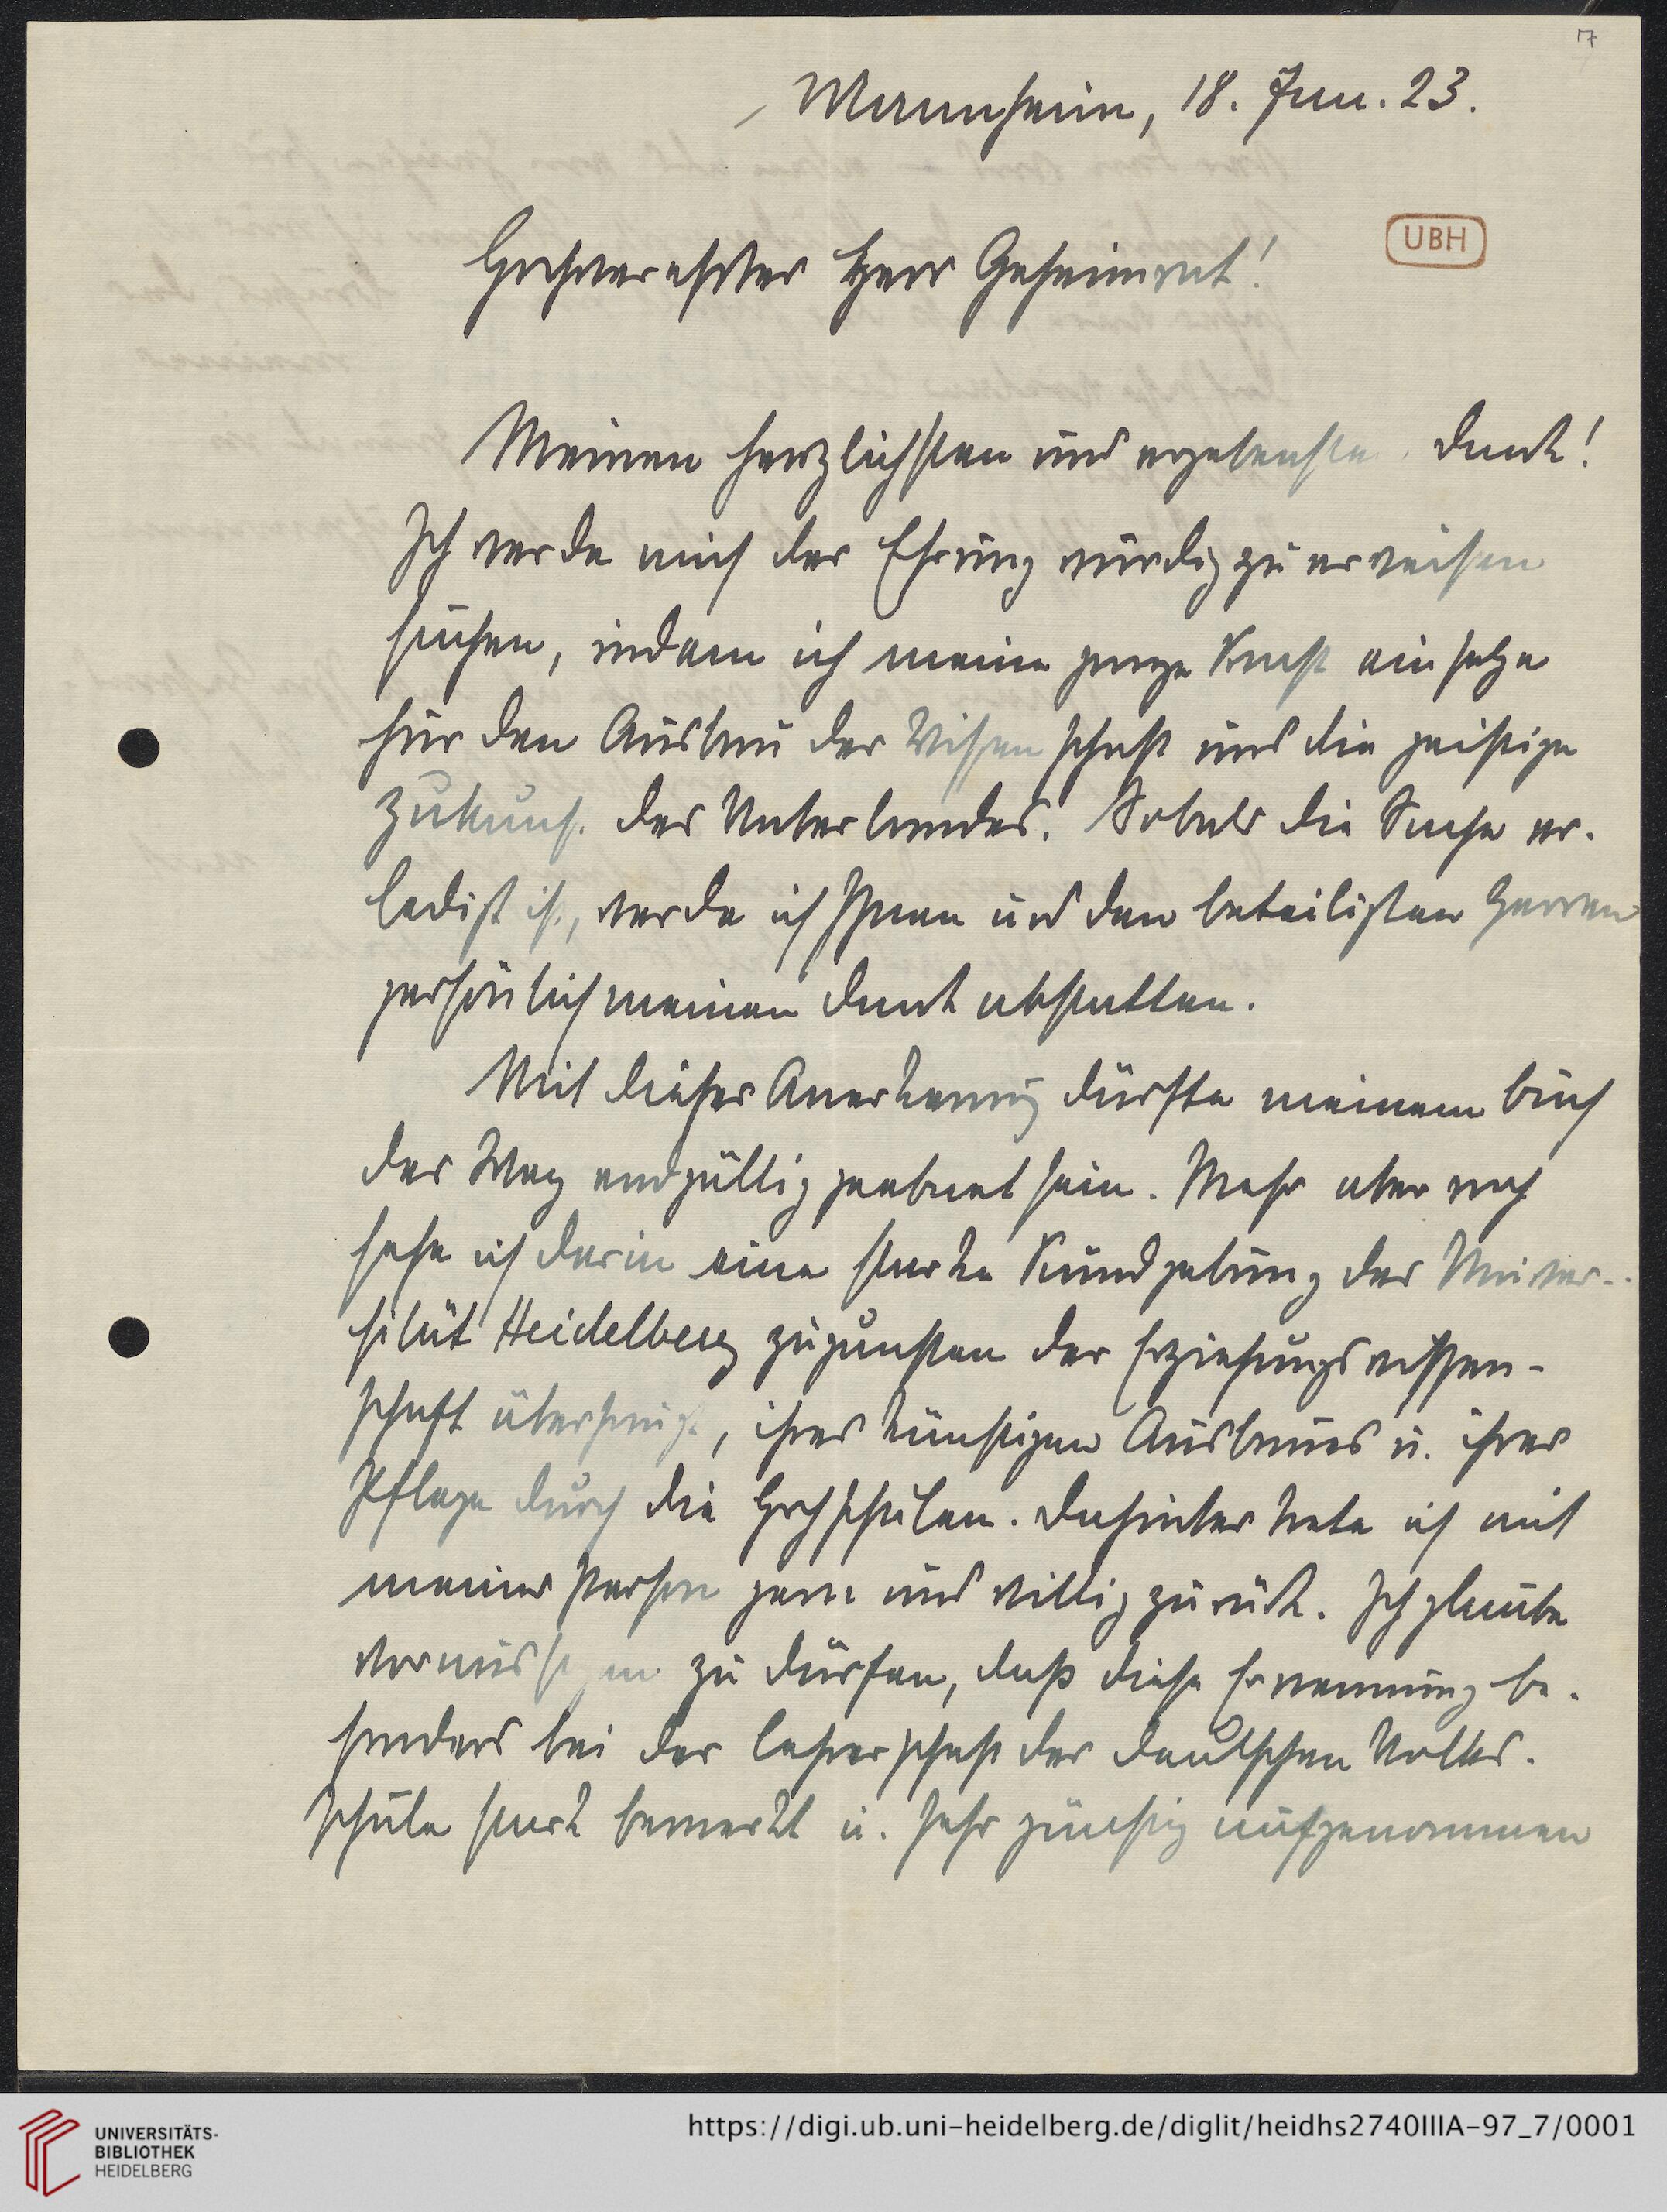 7
Mannheim, 18. Jan. 23.
UBH
Hochverehrter Herr Geheimrat!
Meinen herzlichsten und ergebensten Dank!
Ich werde mich der Ehrung würdig zu erweisen
suchen, indem ich meine ganze Kraft einsetze
für den Ausbau der Wissenschaft und die geistige
Zukunft des Vaterlandes. Sobald die Sache er-
ledigt ist, werde ich Ihnen und den beteiligten Herren
persönlich meinen Dank abstatten.
Mit dieser Anerkennung dürfte meinem Buch
der Weg endgültig geebnet sein. Mehr aber noch
sehe ich darin eine starke Kundgebung der Univer-
sität Heidelberg zugunsten der Erziehungswissen-
schaft überhaupt, ihres künftigen Ausbaues u. ihrer
Pflege durch die Hochschulen. Dahinter trete ich mit
meiner Person gern und willig zurück. Ich glaube
voraussagen zu dürfen, daß diese Ernennung be-
sonders bei der Lehrerschaft der deutschen Volks-
schule stark bemerkt u. sehr günstig aufgenommen
UNIVERSITÄTS-
BIBLIOTHEK
HEIDELBERG
https://digi.ub.uni-heidelberg.de/diglit/heidhs2740IIIA-97_7/0001